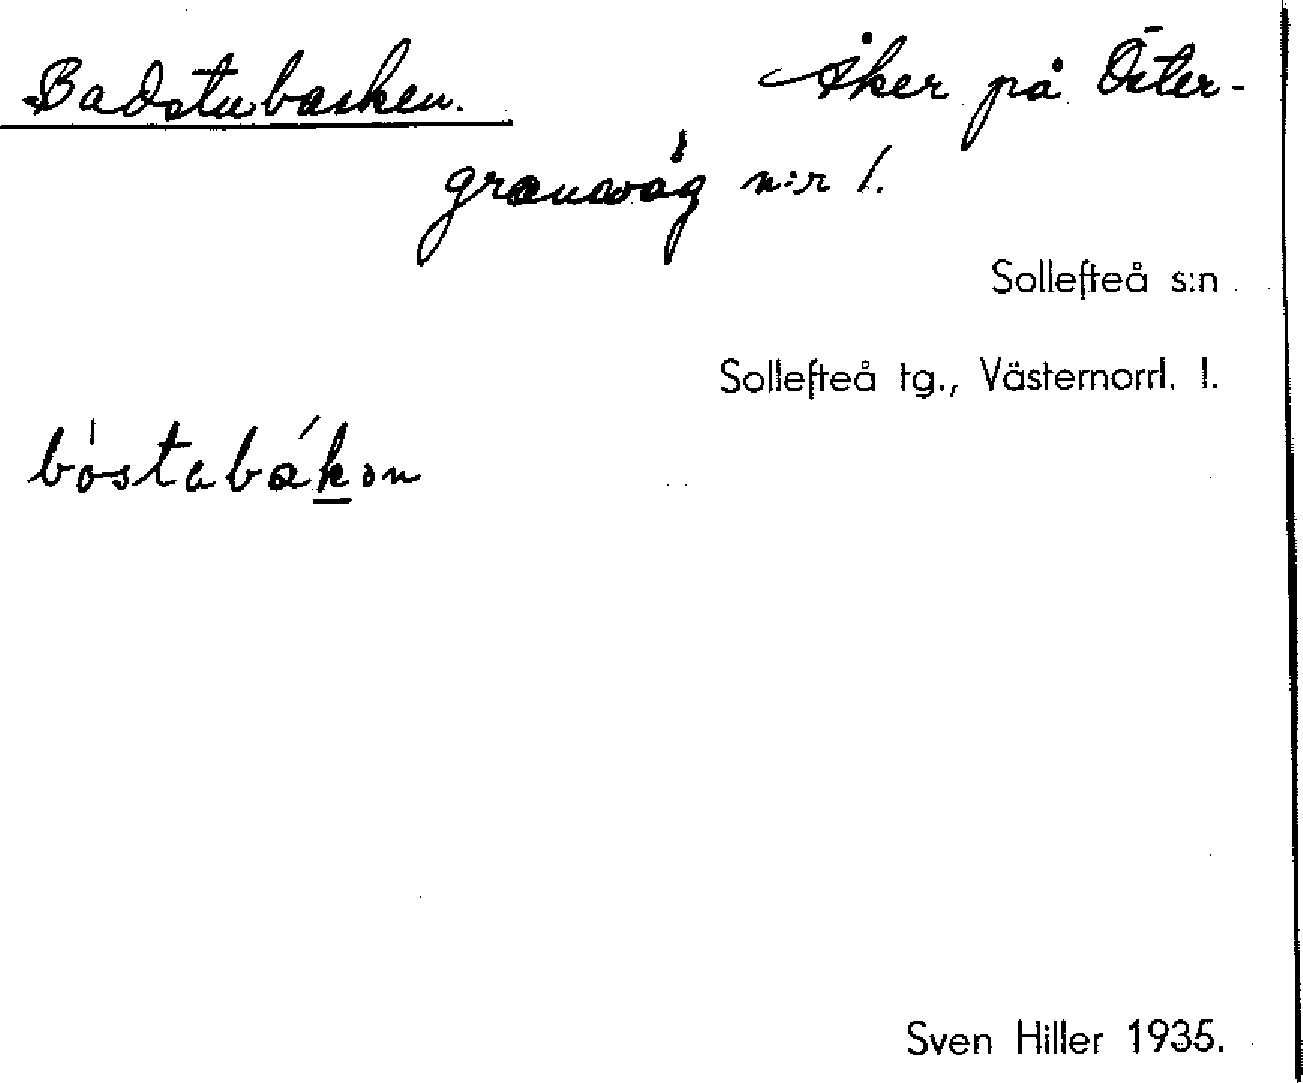 Badstubacken. Åker på Öster-
granvåg n:r 1.
Sollefteå s:n
Sollefteå tg., Västernorrl. l.
Sven Hiller 1935.